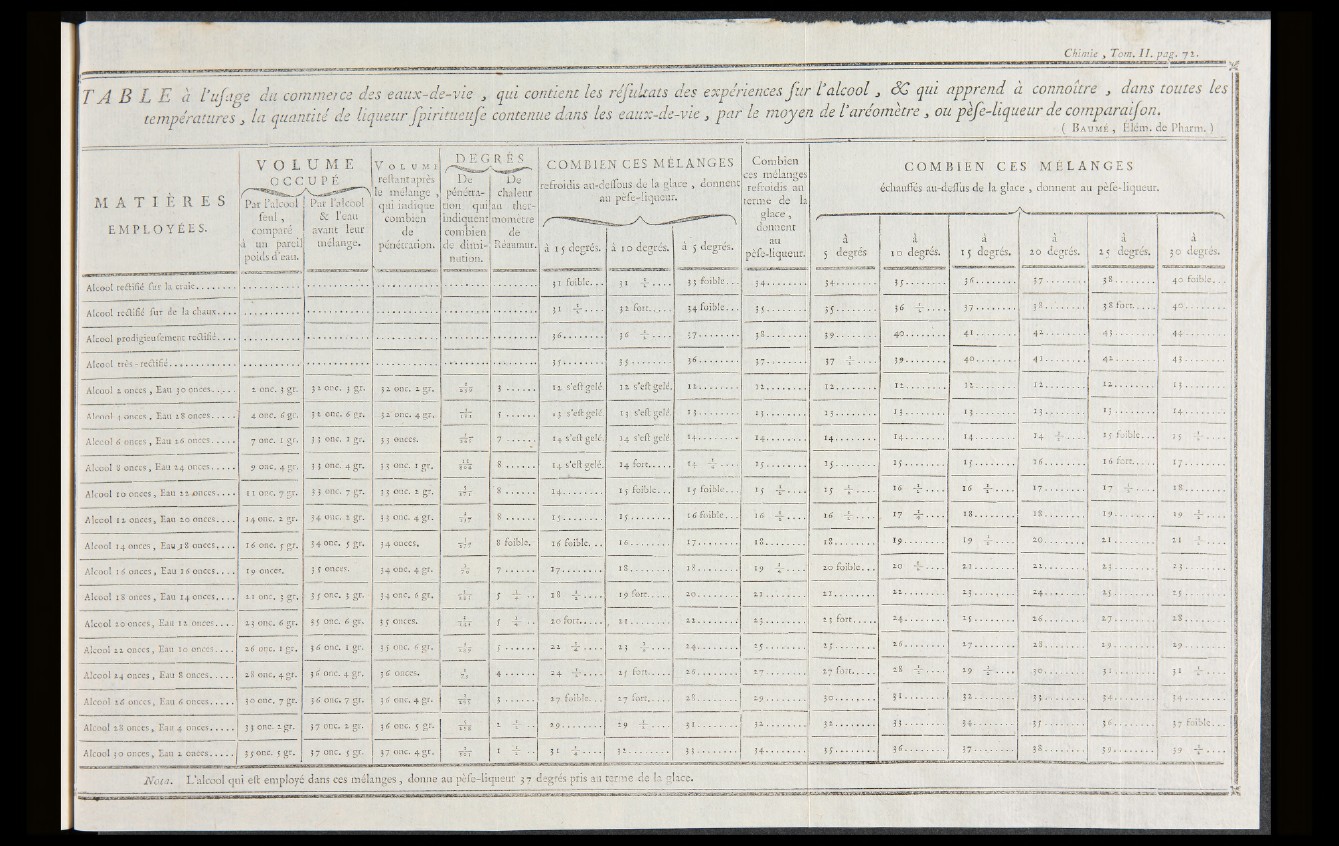 Chimie , Tom. II. pag. 72.
TABLE à l'usage du commerce des eaux-de-vie , qui contient les résultats des expériences sur l'alcool , & qui apprend à connoître , dans toutes les
températures , la quantité de liqueur spiritueuse contenue dans les eaux-de-vie , par le moyen de l'aréomètre , ou pèse-liqueur de comparaison.
( BAUMÉ , Élém. de Pharm. )
MATIÈRES
EMPLOYÉES.
VOLUME
OCCUPÉ
Par l'alcool
seul ,
comparé
à un pareil
poids d'eau.
Par l'alcool
& l'eau
avant leur
mélange.
VOLUME
restant après
le mélange ,
qui indique
combien
de
pénétration.
DEGRÉS
De
pénétra-
tion qui
indiquent
combien
de dimi-
nution.
De
chaleur
au ther-
momètre
de
Réaumur.
COMBIEN CES MÉLANGES
refroidis au-dessous de la glace , donnent
au pèse-liqueur.
à 15 degrés.
à 10 degrés.
à 5 degrés.
Combien
ces mélanges
refroidis au
terme de la
glace ,
donnent
au
pèse-liqueur.
COMBIEN CES MÉLANGES
échauffés au-dessus de la glace , donnent au pèse-liqueur.
à
5 degrés
à
10 degrés.
à
15 degrés.
à
20 degrés.
à
25 degrés.
à
30 degrés.
Alcool rectifié sur la craie........ 31 foible... 31 33 foible... 34........ 34........ 35........ 36........ 37........ 38........ 40 foible...
Alcool rectifié sur de la chaux.... 31 32 fort..... 34 foible... 35........ 35........ 36 37........ 38........ 38 fort..... 40........
Alcool prodigieusement rectifié.... 36........ 36 37........ 38........ 39........ 40........ 41........ 42........ 43........ 44........
Alcool très-rectifié............. 35........ 35........ 36........ 37........ 37 39........ 40........ 41........ 42........ 43........
Alcool 2 onces , Eau 30 onces..... 2 onc. 3 gr. 32 onc. 3 gr. 32 onc. 2 gr. 3 ...... 12 s'est gelé. 12 s'est gelé. 12........ 12........ 12........ 12........ 12........ 12........ 12........ 13........
Alcool 4 onces , Eau 28 onces..... 4 onc. 6 gr. 32 onc. 6 gr. 32 onc. 4 gr. 5 ...... 13 s'est gelé. 13 s'est gelé. 13........ 13........ 13........ 13........ 13........ 13........ 13........ 14........
Alcool 6 onces , Eau 26 onces..... 7 onc. 1 gr. 33 onc. 1 gr. 33 onces. 7 ...... 14 s'est gelé. 14 s'est gelé. 14........ 14........ 14........ 14........ 14........ 14 15 foible... 15
Alcool 8 onces , Eau 24 onces..... 9 onc. 4 gr. 33 onc. 4 gr. 33 onc. 1 gr. 8 ...... 14 s'est gelé. 14 fort..... 14 15........ 15........ 15........ 15........ 16........ 16 fort..... 17........
Alcool 10 onces , Eau 22 onces.... 11 onc. 7 gr. 33 onc. 7 gr. 33 onc. 2 gr. 8 ...... 14........ 15 foible... 15 foible... 15 15 16 16 17........ 17 18........
Alcool 12 onces , Eau 20 onces.... 14 onc. 2 gr. 34 onc. 2 gr. 33 onc. 4 gr. 8 ...... 15........ 15........ 16 foible... 16 16 17 18........ 18........ 19........ 19
Alcool 14 onces , Eau 18 onces.... 16 onc. 5 gr. 34 onc. 5 gr. 34 onces. 8 foible. 16 foible... 16........ 17........ 18........ 18........ 19........ 19 20........ 21........ 21
Alcool 16 onces , Eau 16 onces.... 19 onces. 35 onces. 34 onc. 4 gr. 7 ...... 17........ 18........ 18........ 19 20 foible... 20 21........ 22........ 23........ 23........
Alcool 18 onces , Eau 14 onces.... 21 onc. 3 gr. 35 onc. 3 gr. 34 onc. 6 gr. 5 18 19 fort..... 20........ 21........ 21........ 22........ 23........ 24........ 25........ 25........
Alcool 20 onces , Eau 12 onces.... 23 onc. 6 gr. 35 onc. 6 gr. 35 onces. 5 20 fort..... 21........ 22........ 23........ 23 fort..... 24........ 25........ 26........ 27........ 28........
Alcool 22 onces , Eau 10 onces.... 26 onc. 1 gr. 36 onc. 1 gr. 35 onc. 6 gr. 5 ...... 22 23 24........ 25........ 25........ 26........ 27........ 28........ 29........ 29........
Alcool 24 onces , Eau 8 onces..... 28 onc. 4 gr. 36 onc. 4 gr. 36 onces. 4 ...... 24 25 fort..... 26........ 27........ 27 fort..... 28 29 30........ 31........ 31
Alcool 26 onces , Eau 6 onces..... 30 onc. 7 gr. 36 onc. 7 gr. 36 onc. 4 gr. 3 ...... 27 foible... 27 fort..... 28........ 29........ 30........ 31........ 32........ 33........ 34........ 34........
Alcool 28 onces , Eau 4 onces..... 33 onc. 2 gr. 37 onc. 2 gr. 36 onc. 5 gr. 2 29........ 29 31........ 32........ 32........ 33........ 34........ 35........ 36........ 37 foible...
Alcool 30 onces , Eau 2 onces..... 35 onc. 5 gr. 37 onc. 5 gr. 37 onc. 4 gr. 1 31 32........ 33........ 34........ 35........ 36........ 37........ 38........ 39........ 39
Nota. L'alcool qui est employé dans ces mélanges , donne au pèse-liqueur 37 degrés pris au terme de la glace.